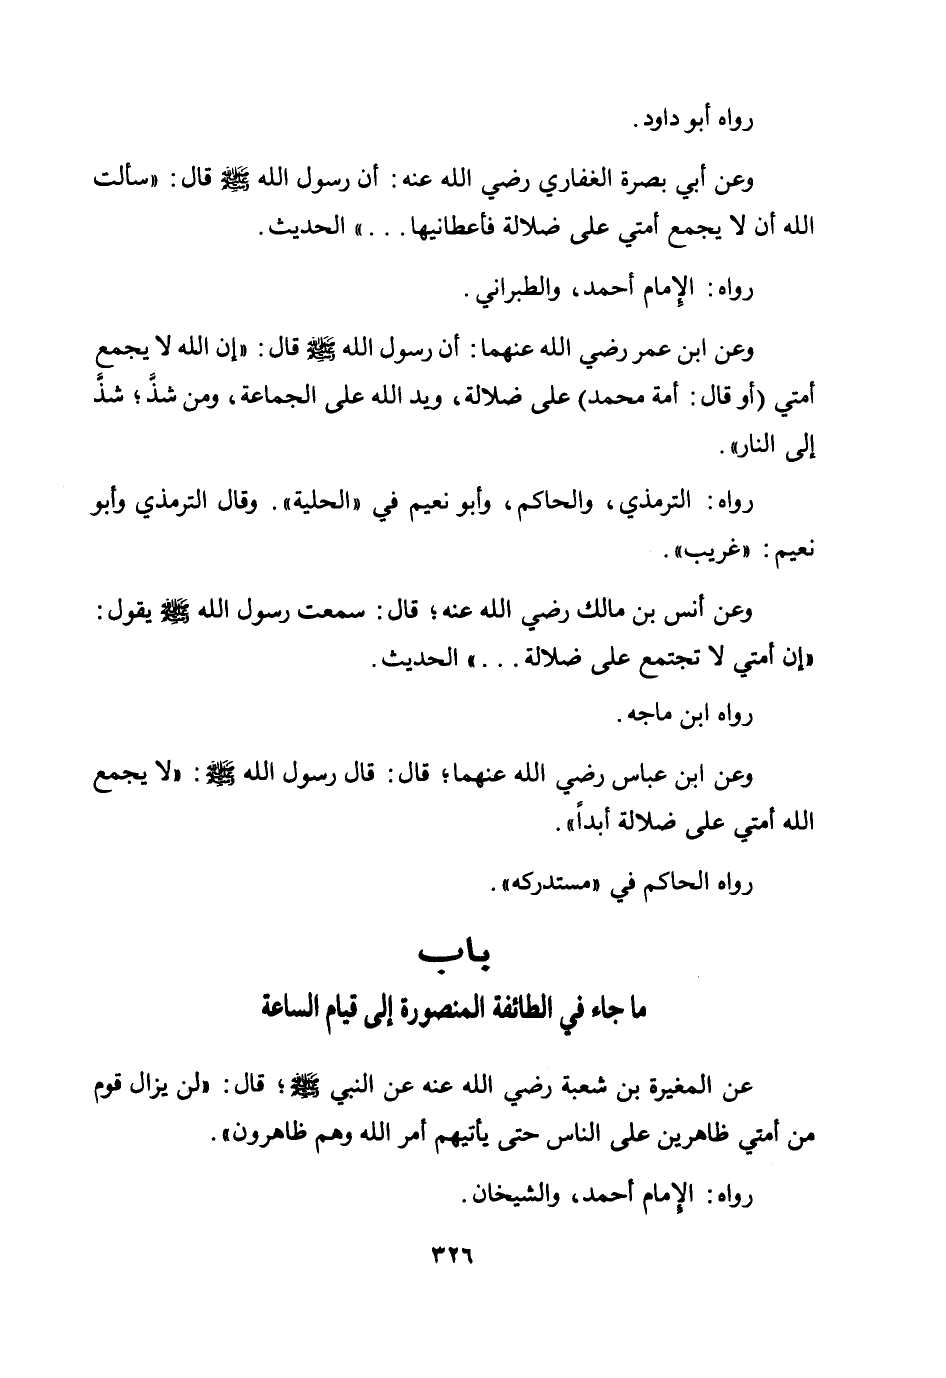 رواه أبو داود.
وعن أبي بصرة الغفاري رضي الله عنه: أن رسول الله ﷺ قال: «سألت
الله أن لا يجمع أمتي على ضلالة فأعطانيها...» الحديث.
رواه: الإمام أحمد، والطبراني.
وعن ابن عمر رضي الله عنهما: أن رسول الله ﷺ قال: «إن الله لا يجمع
أمتي (أو قال: أمة محمد) على ضلالة، ويد الله على الجماعة، ومن شذَّ؛ شذَّ
إلى النار».
رواه: الترمذي، والحاكم، وأبو نعيم في «الحلية». وقال الترمذي وأبو
نعيم: «غريب».
وعن أنس بن مالك رضي الله عنه؛ قال: سمعت رسول الله ﷺ يقول:
«إن أمتي لا تجتمع على ضلالة...» الحديث.
رواه ابن ماجه.
وعن ابن عباس رضي الله عنهما؛ قال: قال رسول الله ﷺ: «لا يجمع
الله أمتي على ضلالة أبداً».
رواه الحاكم في «مستدركه».
باب
ما جاء في الطائفة المنصورة إلى قيام الساعة
عن المغيرة بن شعبة رضي الله عنه عن النبي ﷺ؛ قال: «لن يزال قوم
من أمتي ظاهرين على الناس حتى يأتيهم أمر الله وهم ظاهرون».
رواه: الإمام أحمد، والشيخان.
٣٢٦